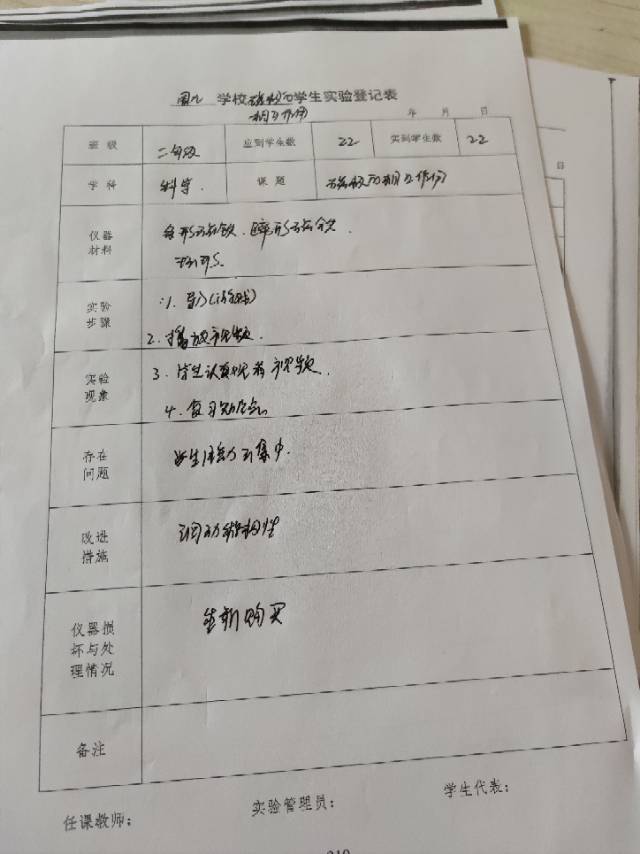 学校磁极的学生实验登记表
相互作用
年 月 日
班级 二年级 应到学生数 22 实到学生数 22
学科 科学. 课题 磁极的相互作用
仪器材料 条形磁铁. 蹄形磁铁.
实验步骤 1. 导入(游戏)
2. 播放视频.
实验现象 3. 学生认真观看视频.
4. 复习知识点.
存在问题 学生注意力不集中.
改进措施 调动积极性
仪器损坏与处理情况 重新购买
备注
任课教师: 实验管理员: 学生代表:
210
日